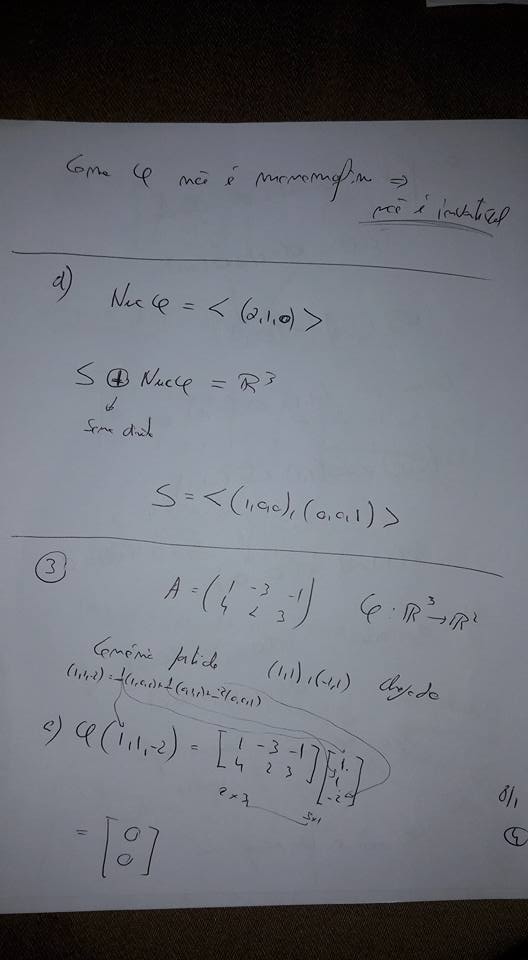 Como φ não é monomorfismo ⇒
não é invertível
d) Nuc φ = < (2,1,0) >
S ⊕ Nuc φ = ℝ³
↓
Soma direta
S = < (1,0,0), (0,0,1) >
③
A = ( 1 -3 -1 ; 4 2 3 ) φ : ℝ³ → ℝ²
Canónica partida (1,1), (-1,1) chegada
(1,1,-2) = 1(1,0,0) + 1(0,1,0) + -2(0,0,1)
φ(1,1,-2) = [ 1 -3 -1 ; 4 2 3 ] [ 1 ; 1 ; -2 ]
2 × 3 3×1
= [ 0 ; 0 ]